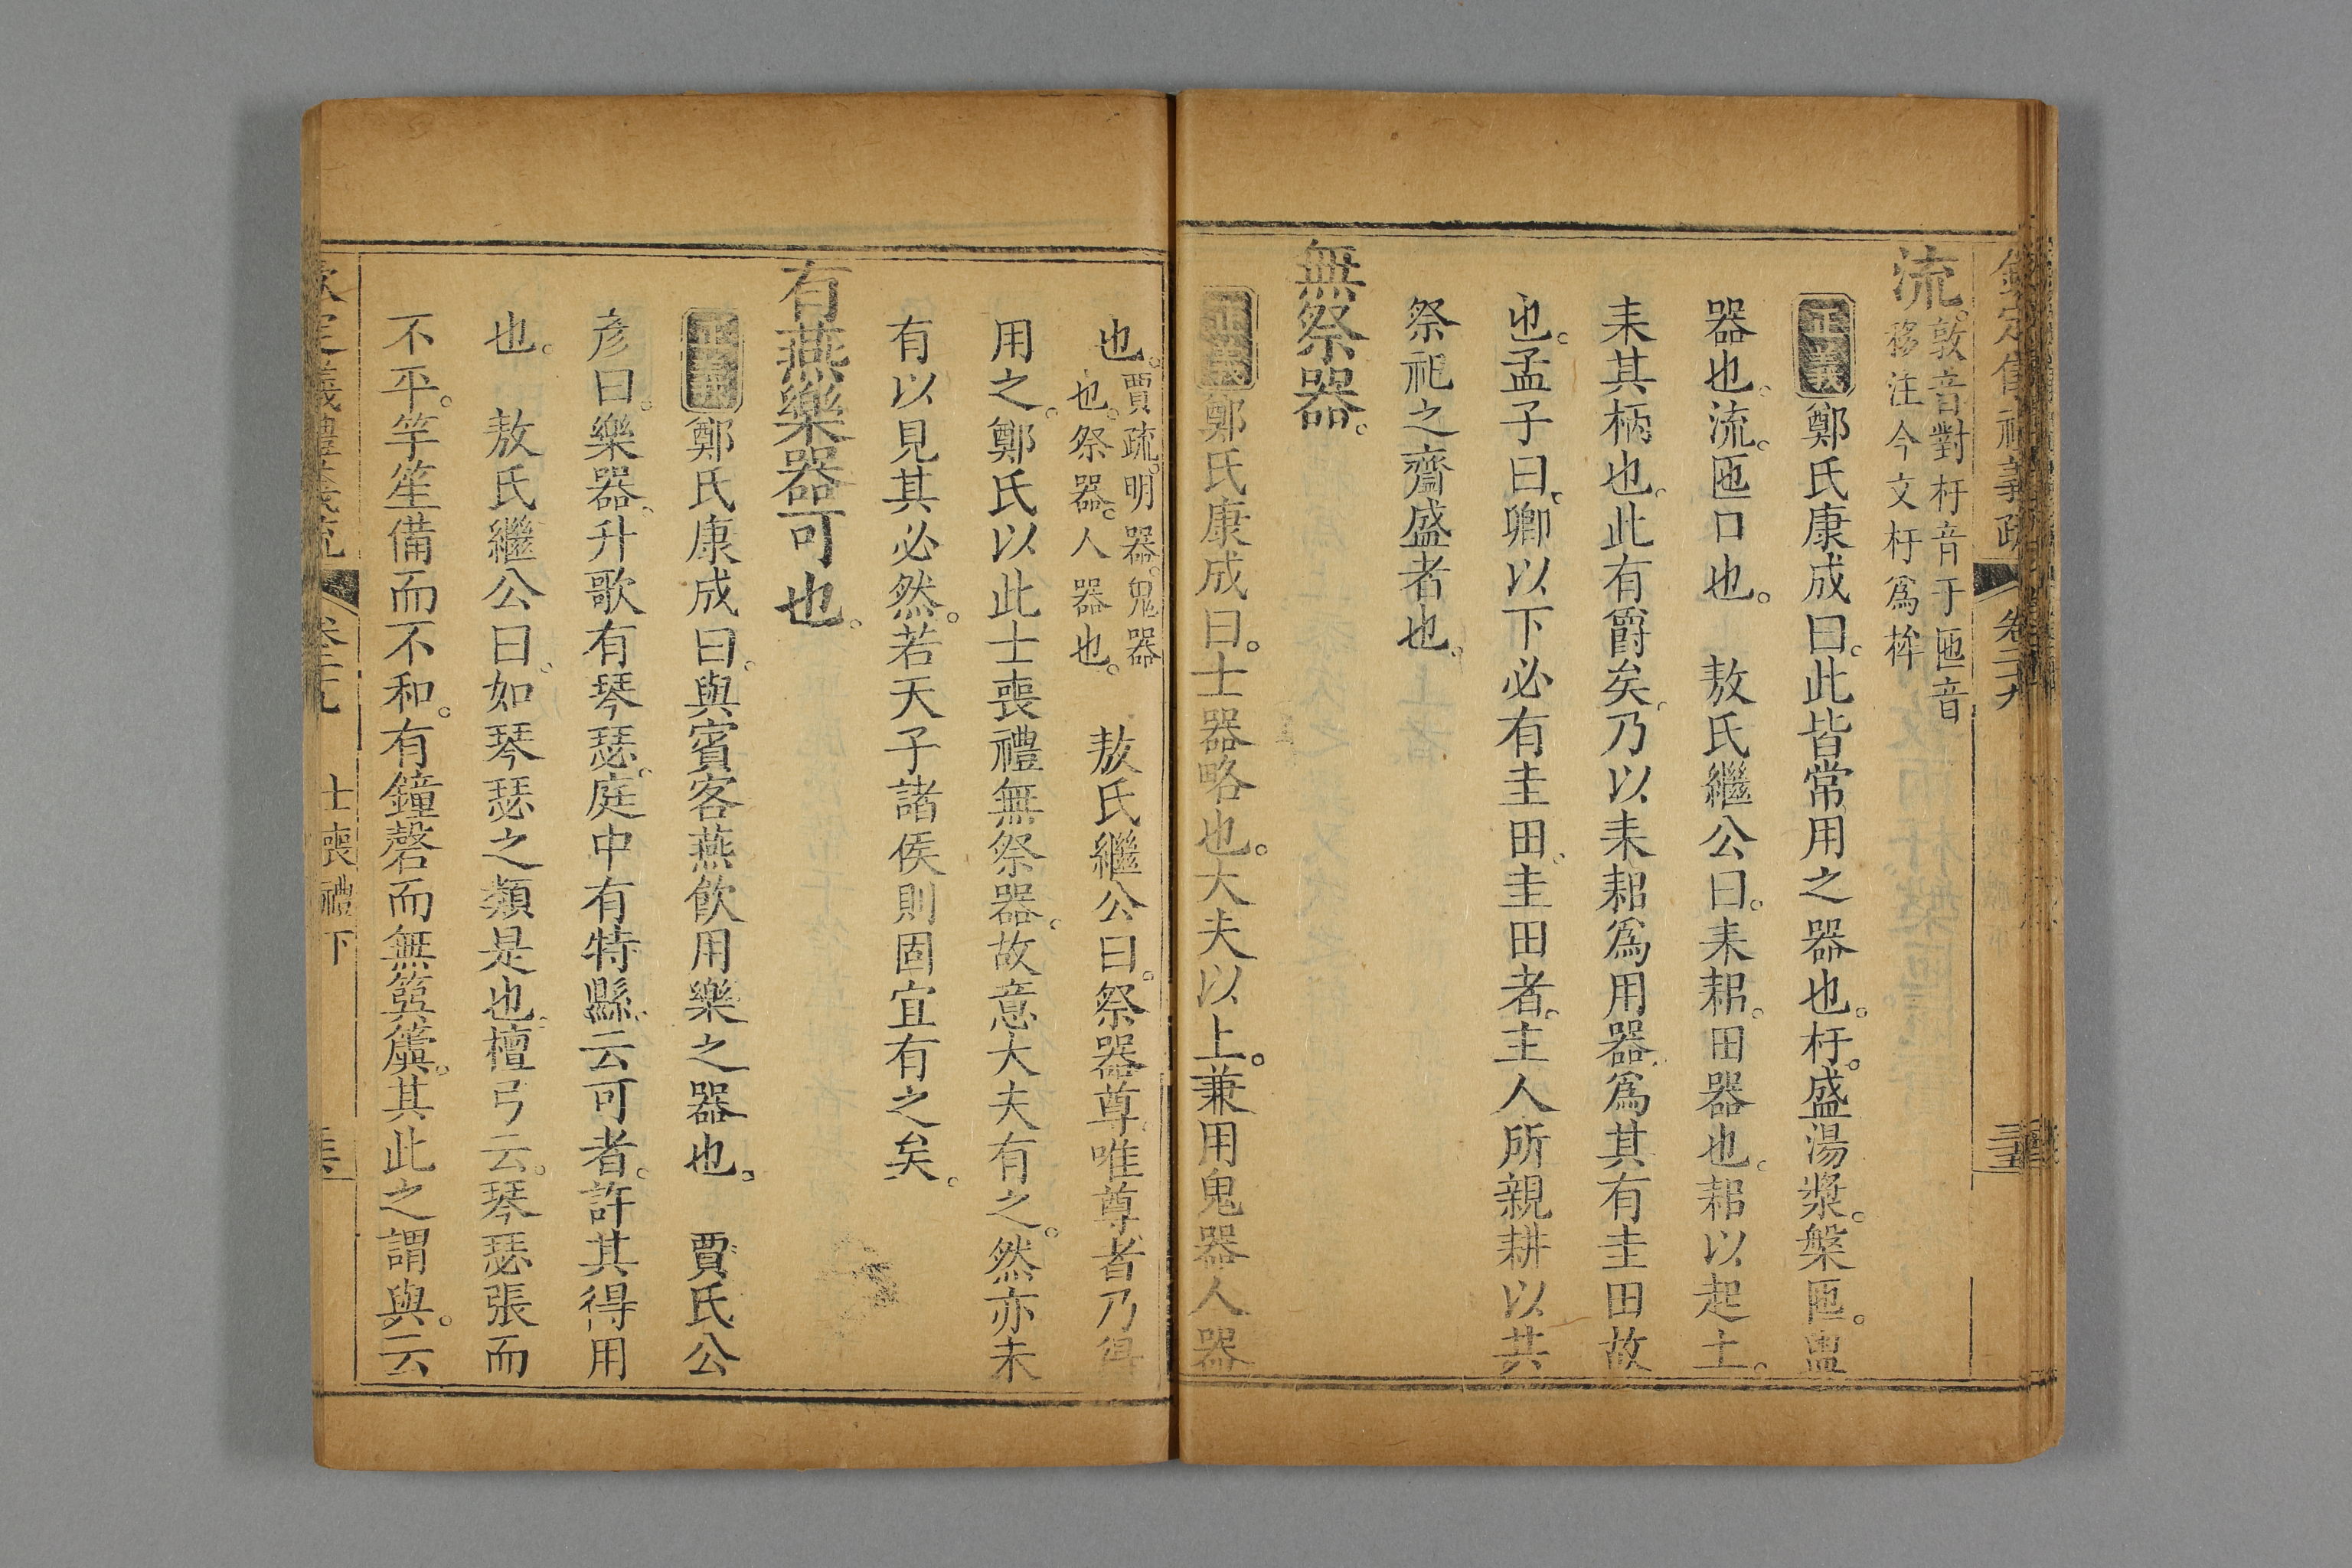 流。敦音對杅音于匜音
移注今文杅爲桙
正義鄭氏康成曰。此皆常用之器也。杅。盛湯漿。槃匜。盥
器也。流。匜口也。　敖氏繼公曰。耒耜。田器也。耜以起土。
耒其柄也。此有爵矣。乃以耒耜爲用器。爲其有圭田故
也。孟子曰。卿以下必有圭田。圭田者。主人所親耕以共
祭祀之齋盛者也。
無祭器。
正義鄭氏康成曰。士器略也。大夫以上。兼用鬼器人器
也。賈疏。明器。鬼器
也。祭器。人器也。　敖氏繼公曰。祭器尊。唯尊者乃得
用之。鄭氏以此士喪禮無祭器。故意大夫有之。然亦未
有以見其必然。若天子諸侯則固宜有之矣。
有燕樂器可也。
正義鄭氏康成曰。與賓客燕飲用樂之器也。　賈氏公
彥曰。樂器。升歌有琴瑟。庭中有特縣。云可者。許其得用
也。　敖氏繼公曰。如琴瑟之類是也。檀弓云。琴瑟張而
不平。竽笙備而不和。有鐘磬而無簨簴。其此之謂與。云
士喪禮下